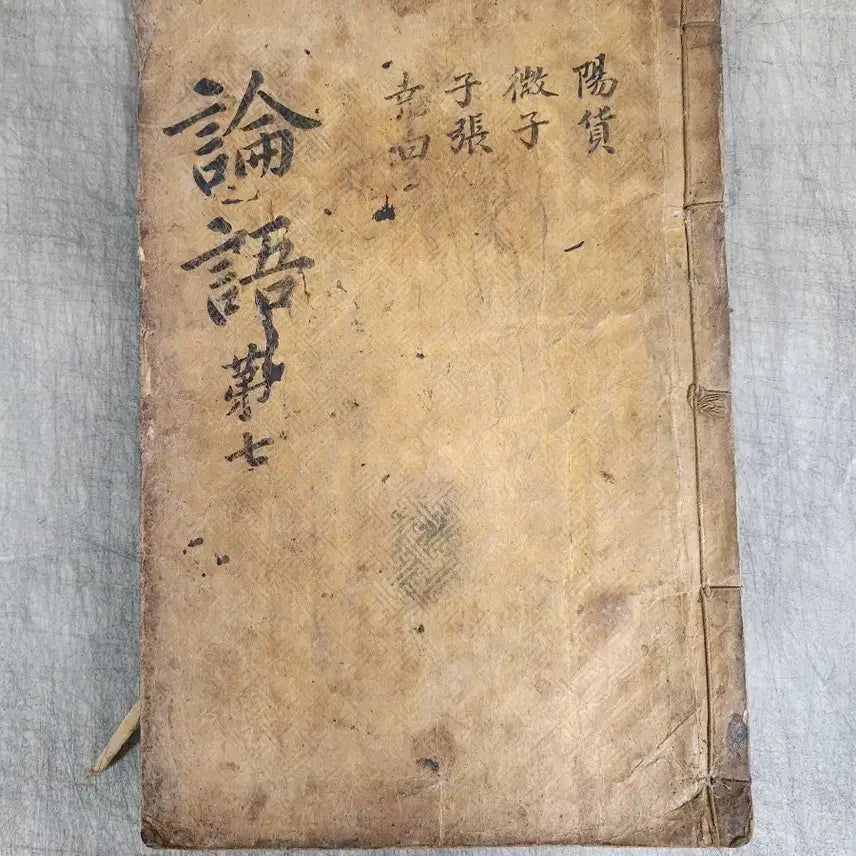 陽貨
微子
子張
尭曰
論語第七